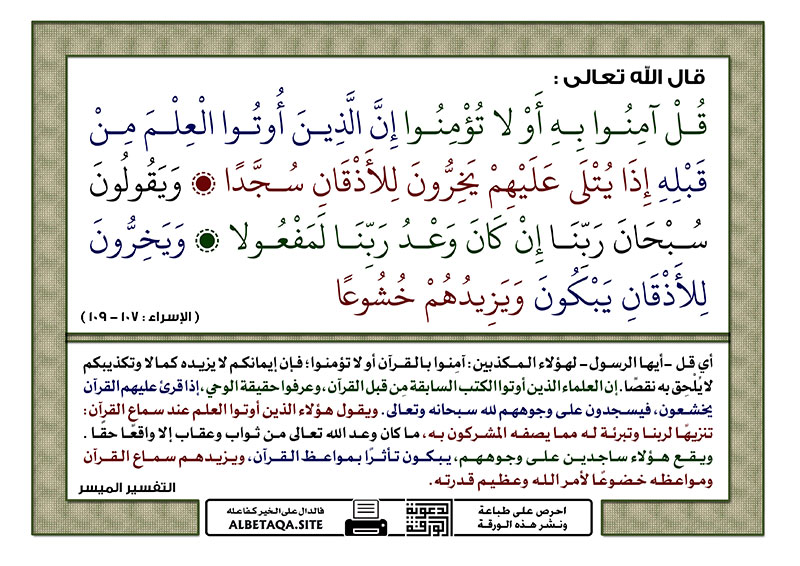 قال الله تعالى :
قُلْ آمِنُوا بِهِ أَوْ لا تُؤْمِنُوا إِنَّ الَّذِينَ أُوتُوا الْعِلْمَ مِنْ
قَبْلِهِ إِذَا يُتْلَى عَلَيْهِمْ يَخِرُّونَ لِلأَذْقَانِ سُجَّدًا ۞ وَيَقُولُونَ
سُبْحَانَ رَبِّنَا إِنْ كَانَ وَعْدُ رَبِّنَا لَمَفْعُولا ۞ وَيَخِرُّونَ
لِلأَذْقَانِ يَبْكُونَ وَيَزِيدُهُمْ خُشُوعًا
( الإسراء : ١٠٧ - ١٠٩ )
أي قل -أيها الرسول- لهؤلاء المكذبين : آمِنوا بالقرآن أو لا تؤمنوا ؛ فإن إيمانكم لا يزيده كمالا وتكذيبكم
لا يُلْحِق به نقصًا . إن العلماء الذين أوتوا الكتب السابقة مِن قبل القرآن ، وعرفوا حقيقة الوحي ، إذا قرئ عليهم القرآن
يخشعون ، فيسجدون على وجوههم لله سبحانه وتعالى . ويقول هؤلاء الذين أوتوا العلم عند سماع القرآن :
تنزيهًا لربنا وتبرئة له مما يصفه المشركون به ، ما كان وعد الله تعالى من ثواب وعقاب إلا واقعًا حقًا .
ويقع هؤلاء ساجدين على وجوههم ، يبكون تأثرًا بمواعظ القرآن ، ويزيدهم سماع القرآن
ومواعظه خضوعًا لأمر الله وعظيم قدرته .
التفسير الميسر
احرص على طباعة
ونشر هذه الورقة
الورقة الدعوية
فالدال على الخير كفاعله
ALBETAQA.SITE